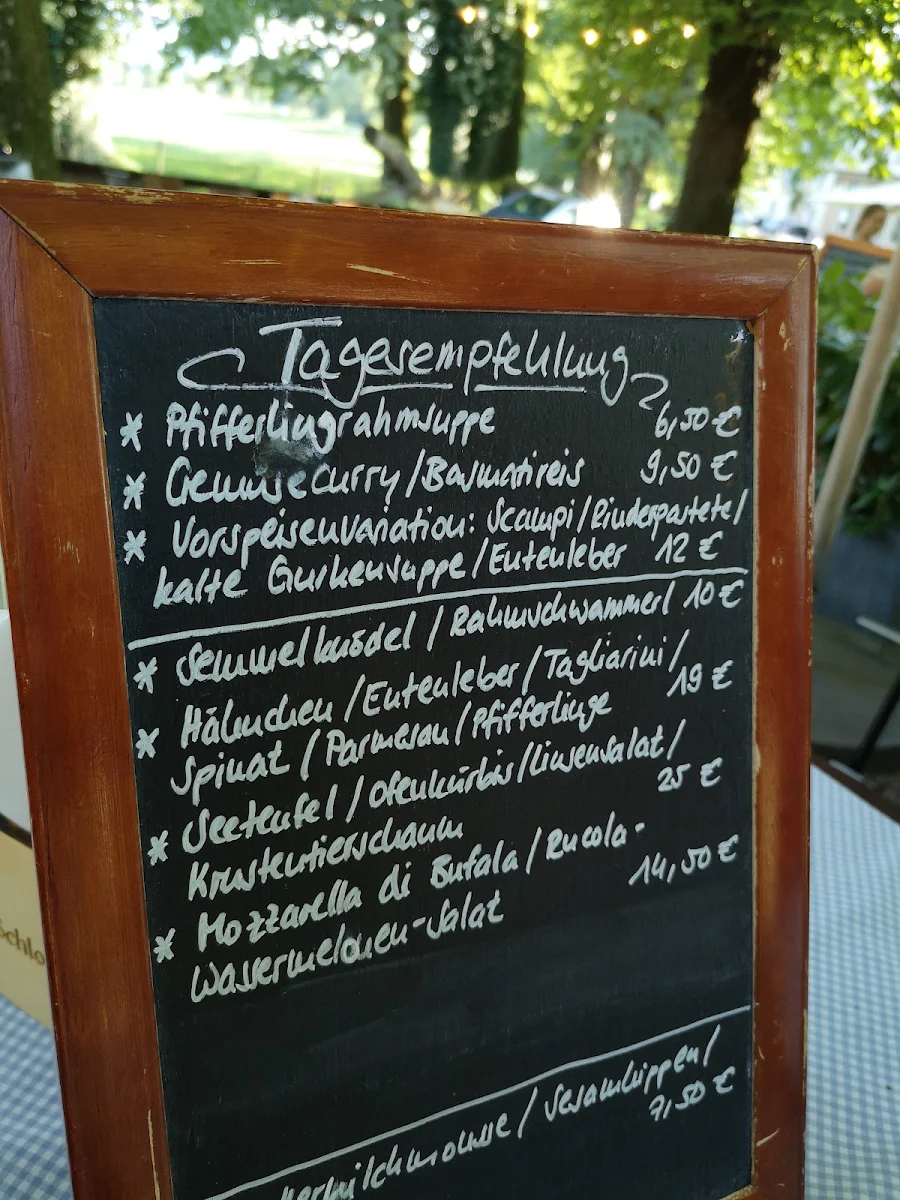 Tagesempfehlung
* Pfifferlingrahmsuppe 6,50 €
* Gemüsecurry/Basmatireis 9,50 €
* Vorspeisenvariation: Scampi/Rinderpastete/
kalte Gurkensuppe/Entenleber 12 €
* Semmelknödel/Rahmschwammerl 10 €
* Hähnchen/Entenleber/Tagliarini/
Spinat/Parmesan/Pfifferlinge 19 €
* Seeteufel/Ofenkürbis/Linsensalat/
Krustentierschaum 25 €
* Mozzarella di Bufala/Rucola-
Wassermelonen-Salat 14,50 €
ermilchmousse/Sesamhippen/
7,50 €
Schlo